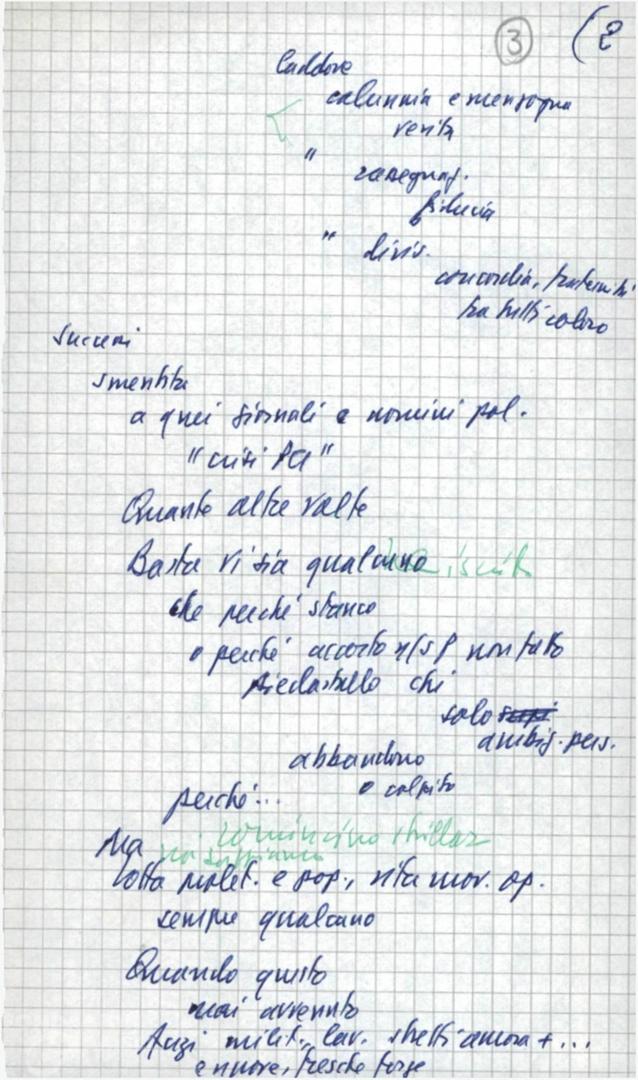 3 (2
Laddove
calunnia e menzogna
verità
" rassegnaz.
fiducia
" divis.
concordia, fraternità
tra tutti coloro
Successi
smentita
a quei giornali e uomini pol.
"crisi PCI"
Quante altre volte
Basta vi sia qualcuno
che perché stanco
o perché accorto n/s P non fatto
piedastallo chi
solo
ambiz. pers.
abbandono
o colpito
perché...
cominciano strillar
Ma noi sappiamo
lotta prolet. e pop., vita mov. op.
sempre qualcuno
Quando questo
mai avvenuto
Anzi milit. lav. stretti ancora + ...
e nuove, fresche forze